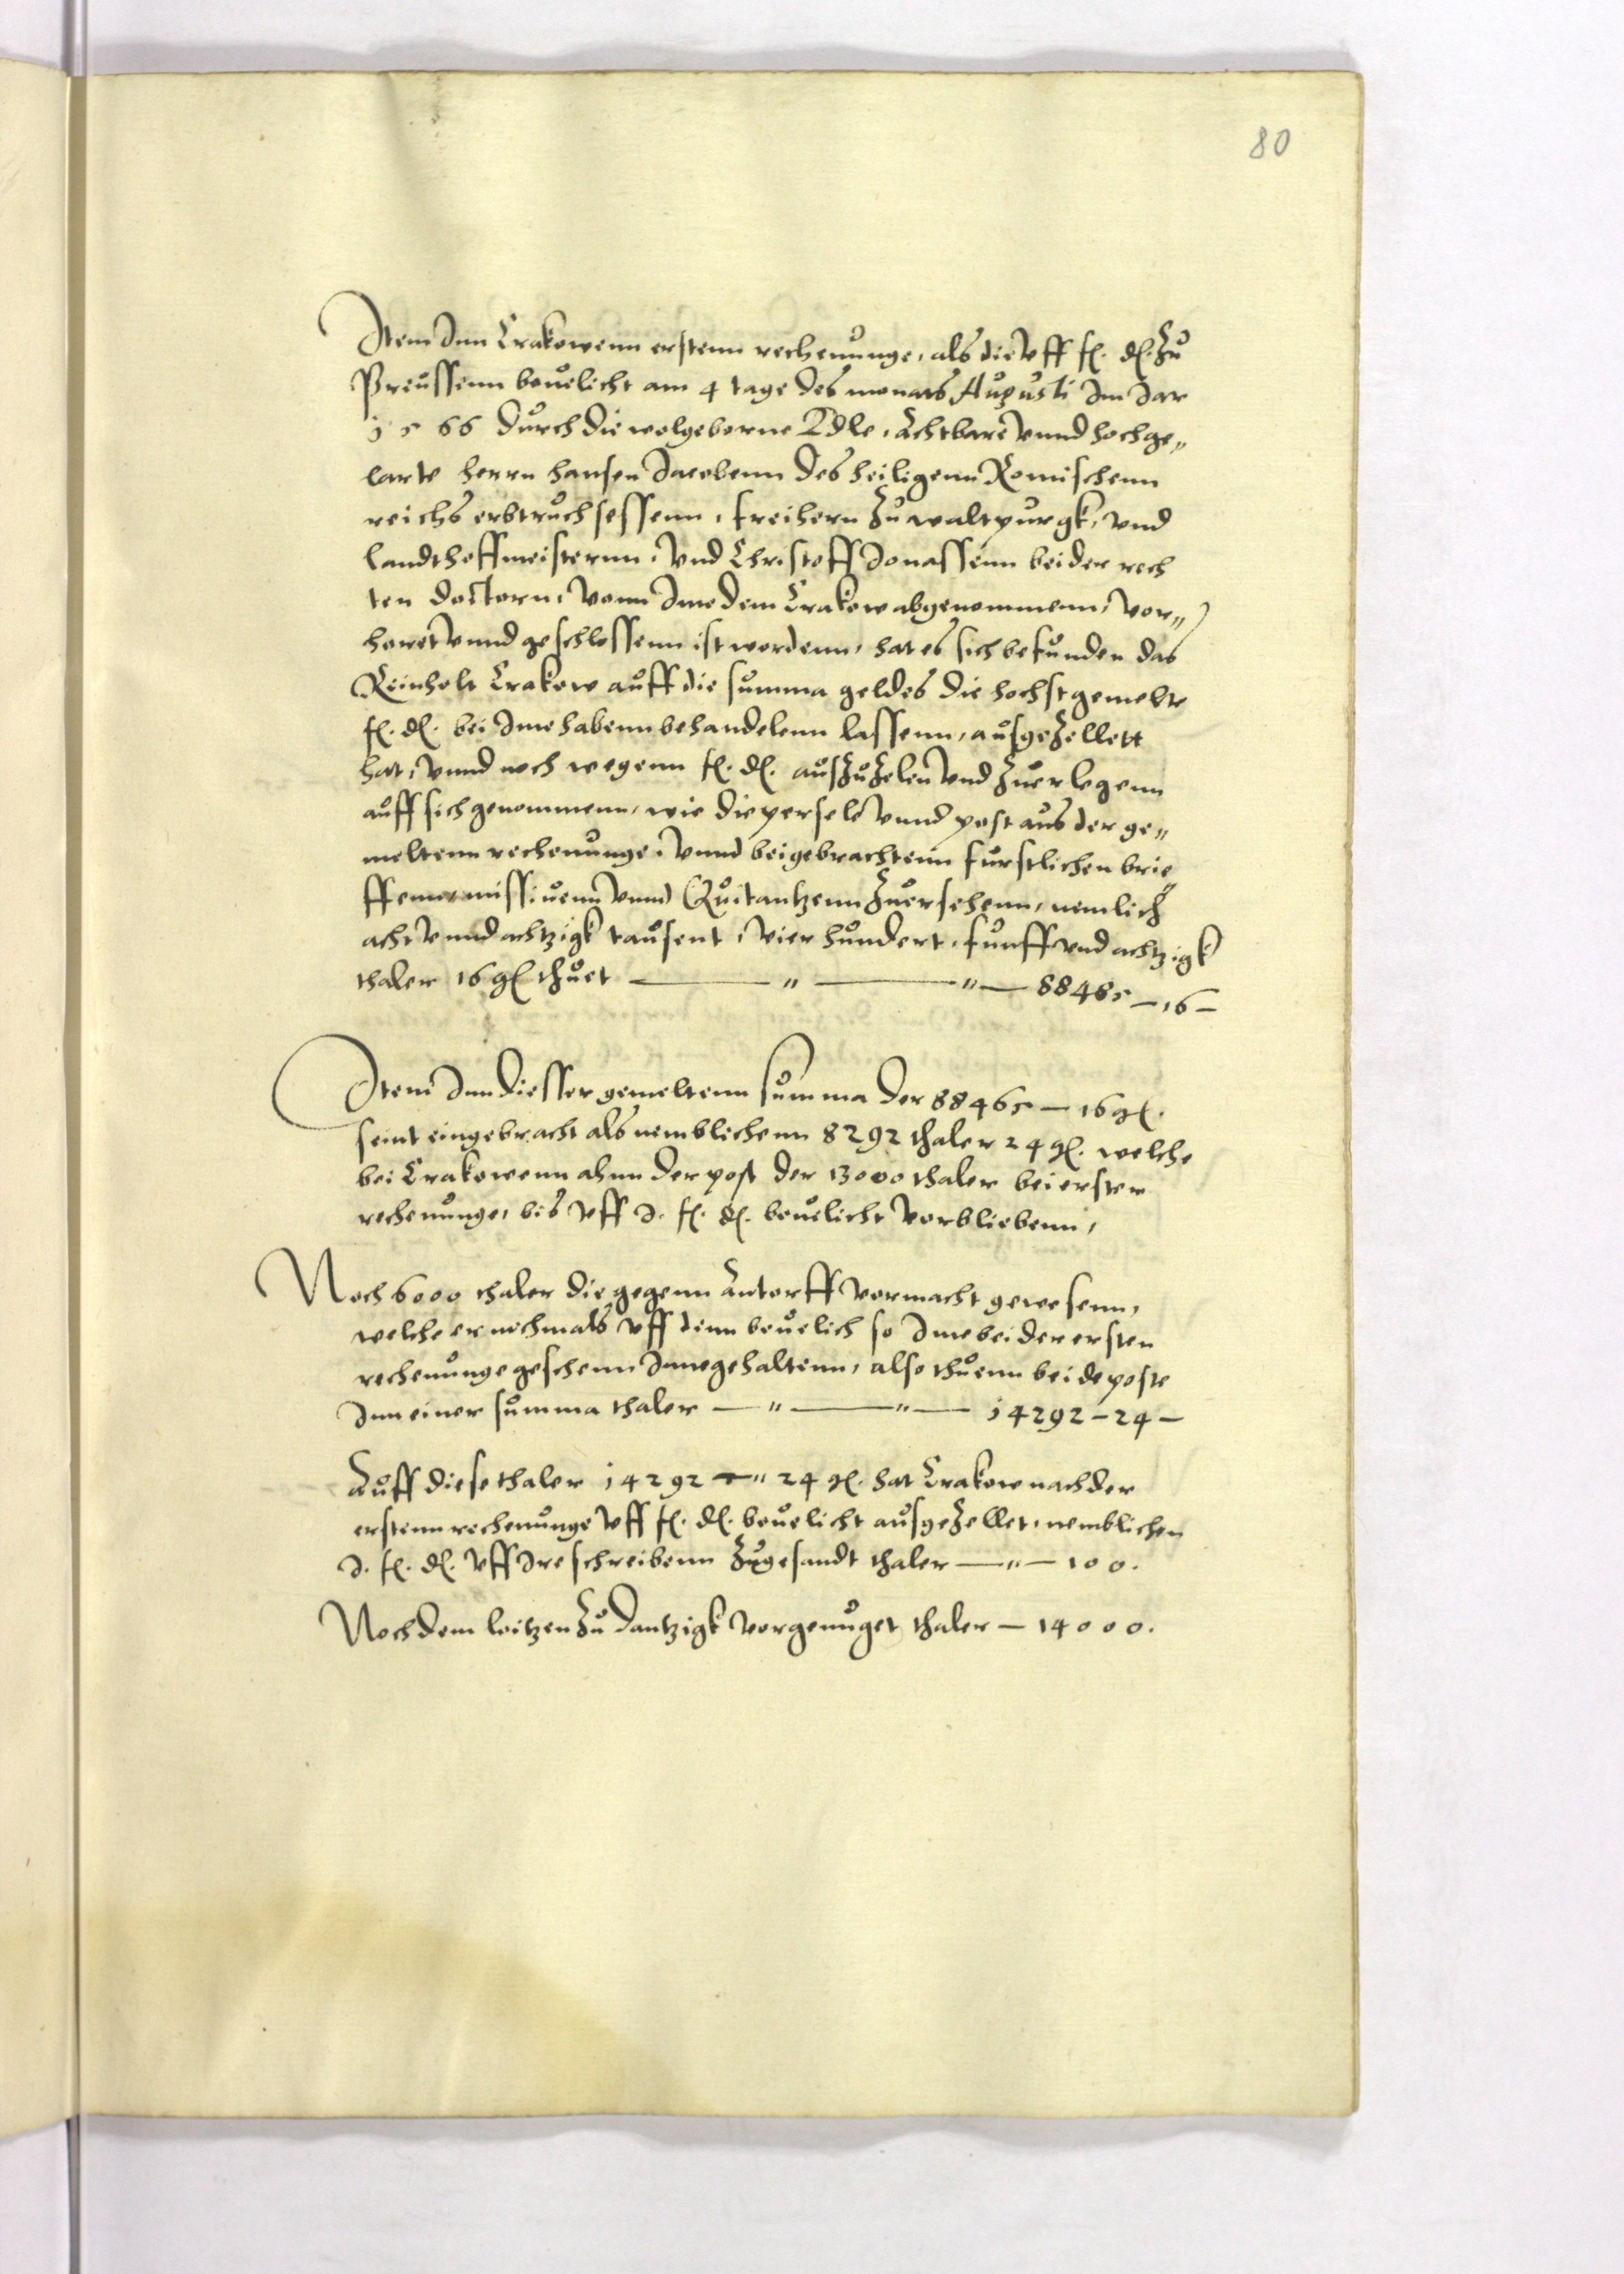 80
Item Inn Crakowenn erstenn rechenunge, als die uff fl. dl. zu
Preussenn bevelicht am 4 tage des monats Augusti Im Jar
1566 durch die wolgeborne Edle, Achtbare unnd hochge„
larte herrn hansen Jacobenn des heiligenn Romischenn
reichs erbtruchsessenn, freihern zu waltpurgk, und
landthoffmeisternn, und Christoff Jonassenn beider rech
ten doctorn, vonn Ime dem Crakow abgenommenn, vor„
horet unnd geschlossenn ist wordenn, hat es sich befunden das
Reinholt Crakow auff die summa geldes die hochstgemelte
fl. dl. bei Ime habenn behandelenn lassenn, ausgezellett
hat, unnd noch wegenn fl. dl. auszuzelen und zuerlegenn
auff sich genommenn, wie die persele unnd post aus der ge„
meltenn rechenunge, unnd beigebrachtenn furstlichen brie
ffenn missivenn unnd Quitantzenn zuersehenn, nemlich
acht unnd achtzigk tausent, vier hundert, funff und achtzigk
thaler 16 gl thuet — „ — „ — 88485 — 16 —
Item Inn diesser gemeltenn summa der 88465 — 16 gl.
seint eingebracht als nemblichenn 8292 thaler 24 gl. welche
bei Crakowenn ahnn der post der 13000 thaler bei erster
rechenunge, bis uff I. fl. dl. bevelicht verbliebenn,
Noch 6000 thaler die gegenn Antorff vermacht gewesenn,
welche er nochmals uff denn bevelich so Ime bei der ersten
rechenunge geschenn Innegehaltenn, also thuenn beide poste
Inn einer summa thaler — „ — „ — 14292 — 24 —
Auff diese thaler 14292 — „ 24 gl. hat Crakow nach der
erstenn rechenunge uff fl. dl. bevelicht ausgezellet, nemblichen
I. fl. dl. uff Ire schreibenn zugesandt thaler — „ — 100.
Noch dem loitzen zu Dantzigk vergenuget thaler — 14000.